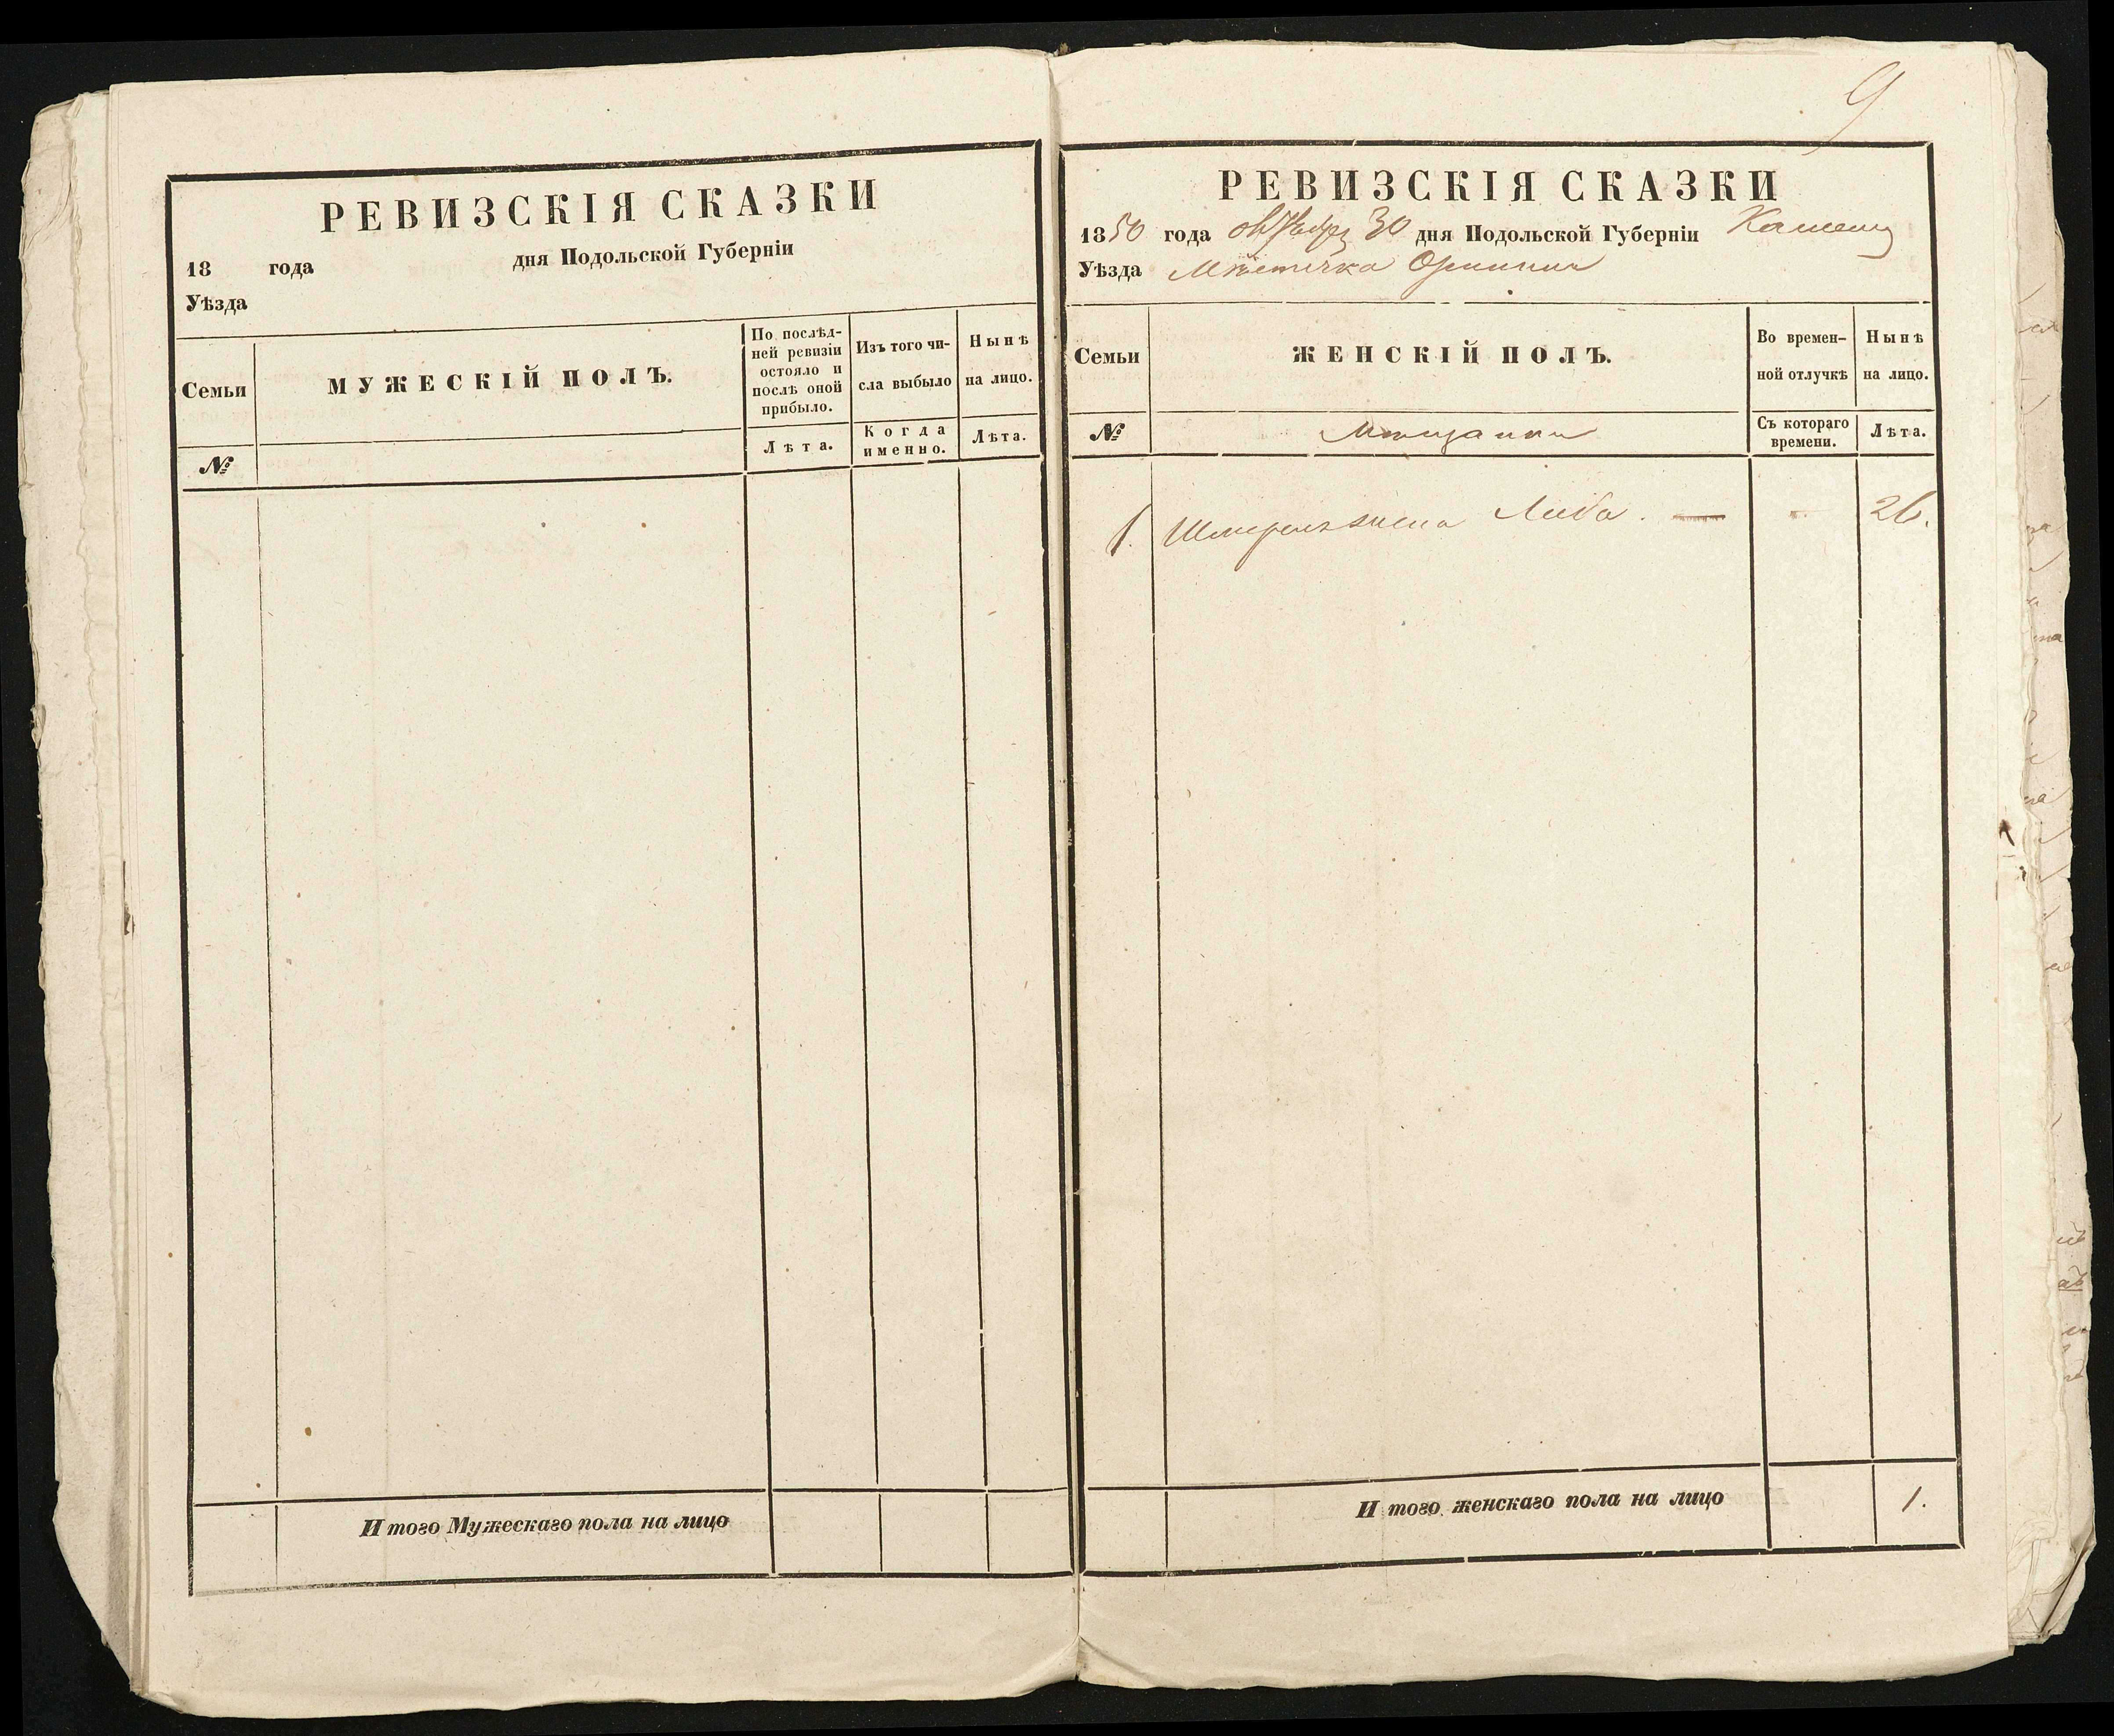 РЕВИЗСКІЯ СКАЗКИ
18 года дня Подольской Губерніи
Уѣзда
Семьи
МУЖЕСКІЙ ПОЛЪ.
По послѣд-
ней ревизіи
остояло и
послѣ оной
прибыло.
Изъ того чи-
сла выбыло
Нынѣ
на лицо.
№
Лѣта.
Когда
именно.
Лѣта.
Итого Мужескаго пола на лицо
9
РЕВИЗСКІЯ СКАЗКИ
1850 года октября 30 дня Подольской Губерніи Каменец
Уѣзда Мѣстечка Оринина
Семьи
ЖЕНСКІЙ ПОЛЪ.
Во времен-
ной отлучкѣ
Нынѣ
на лицо.
№
Мещанки
Съ котораго
времени.
Лѣта.
1. жена Либа. — - 26.
Итого женскаго пола на лицо 1.